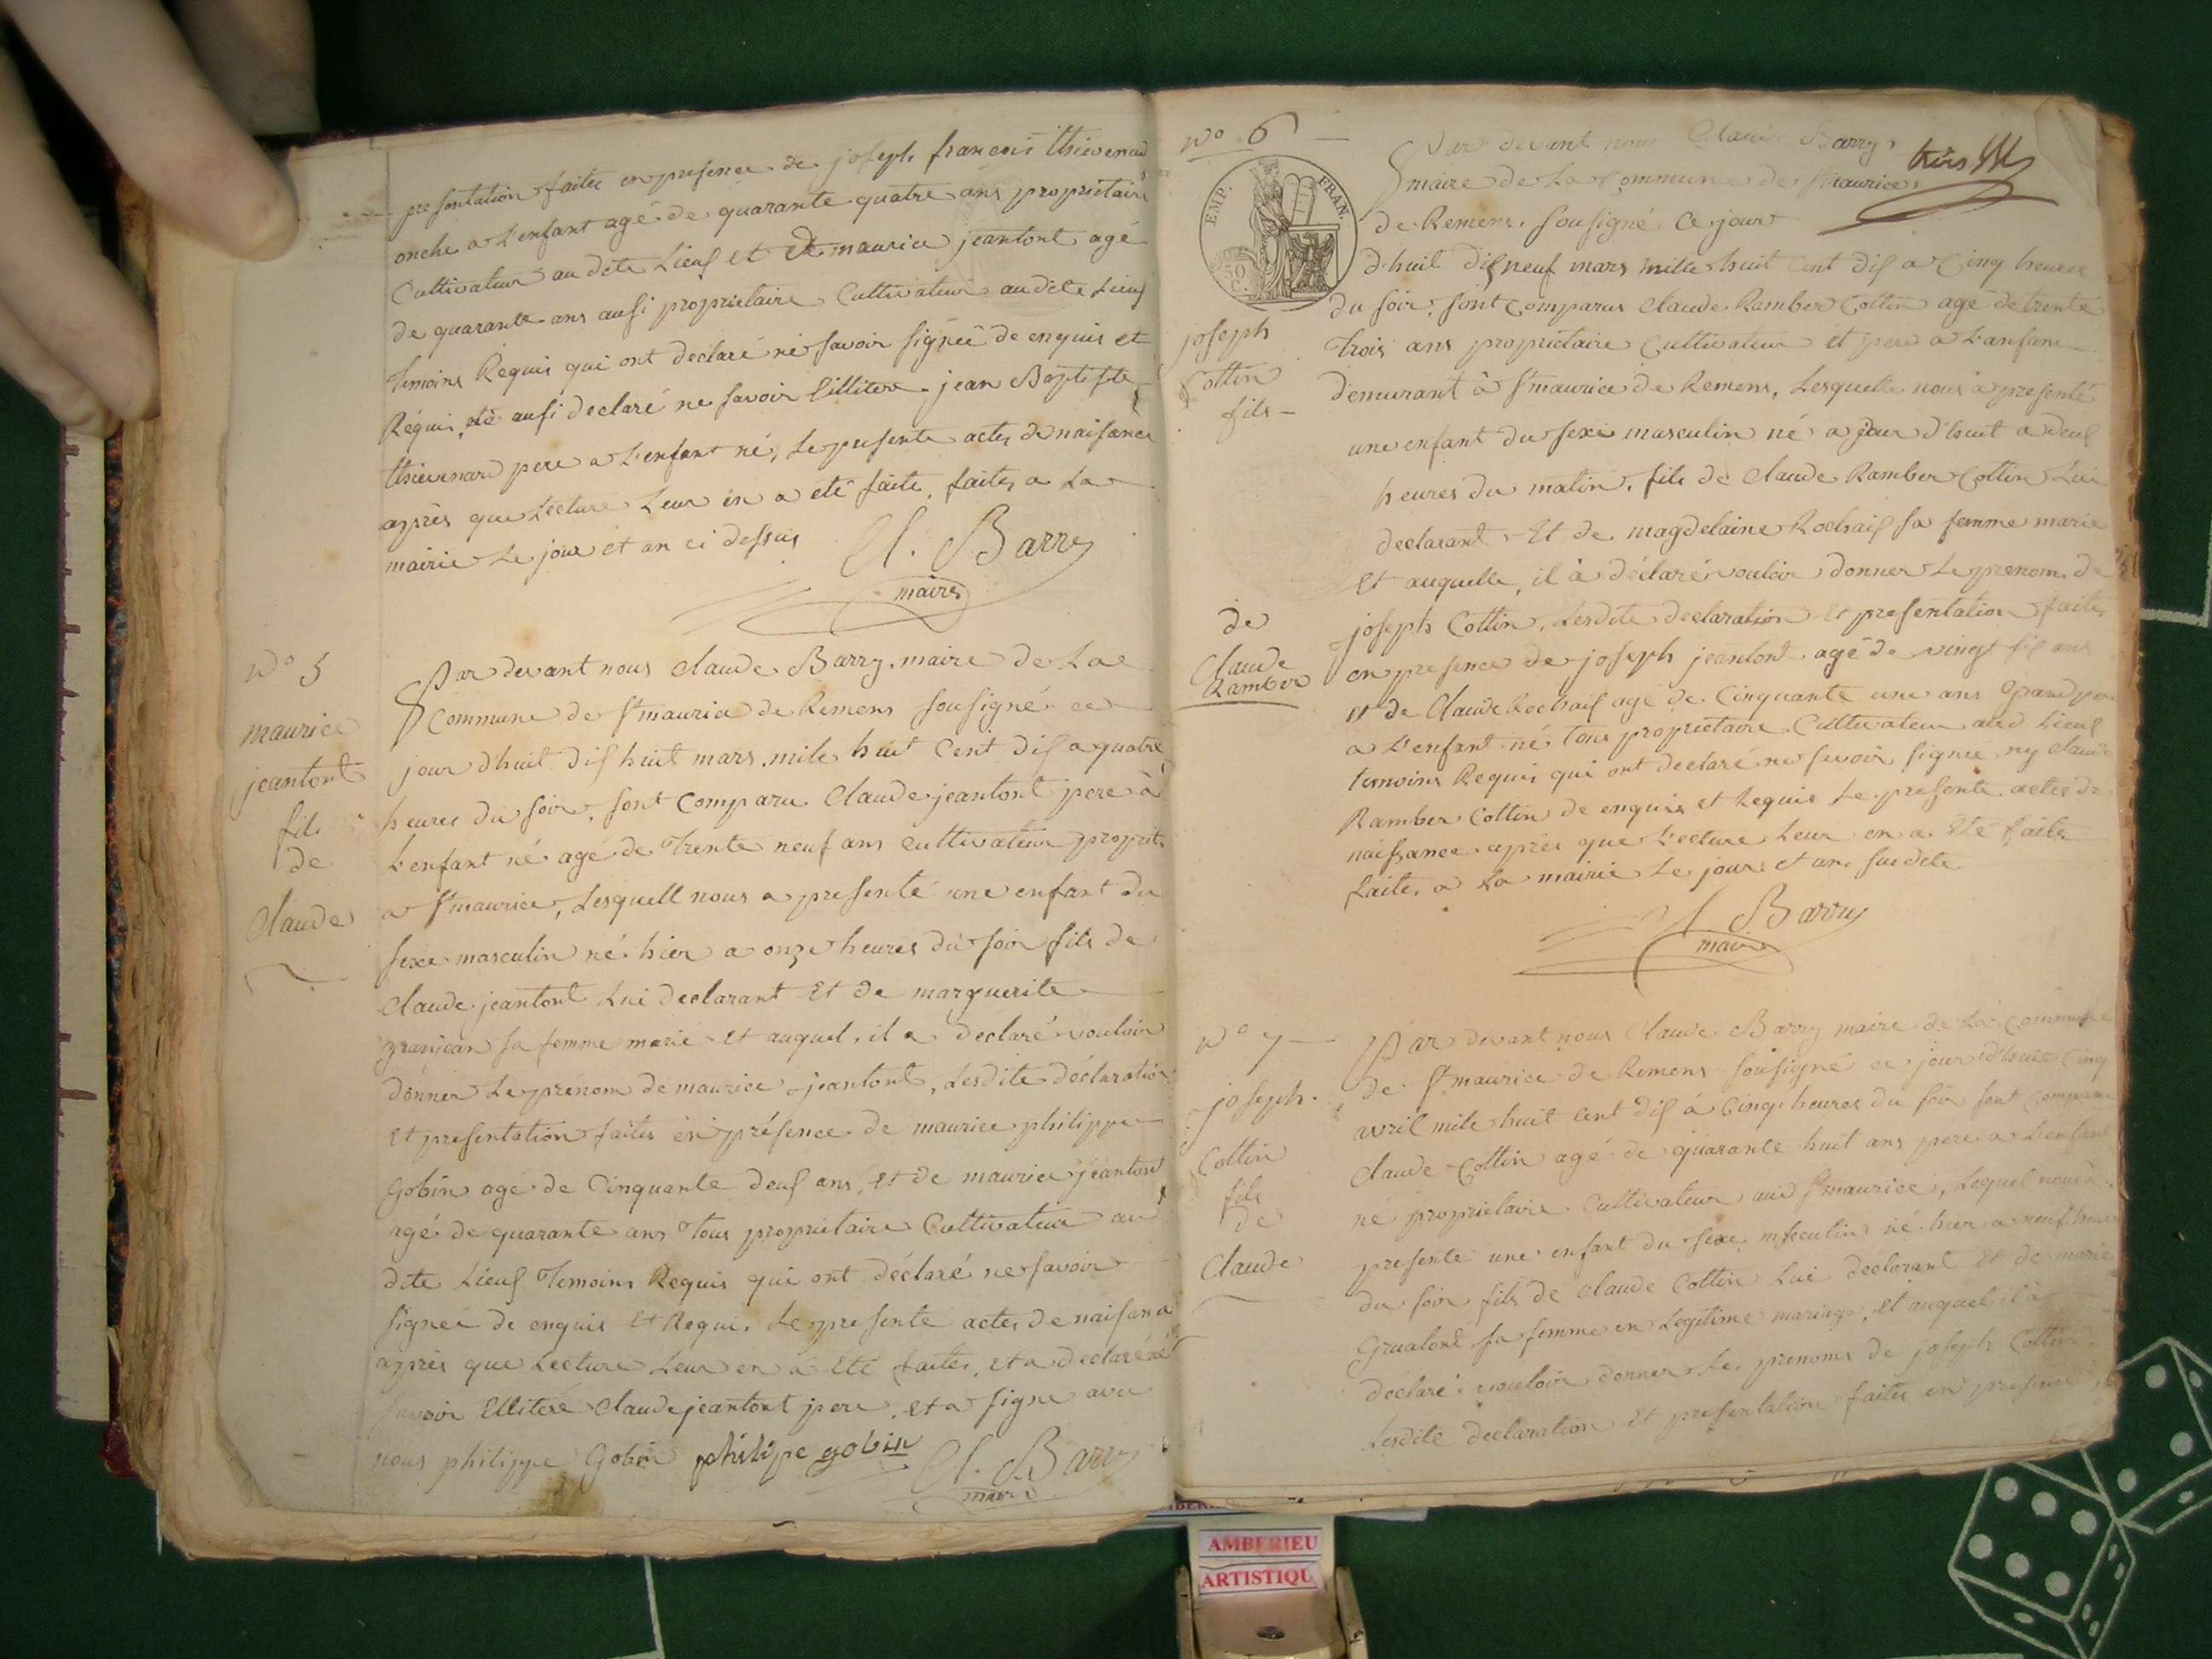 presentation faites en presence de joseph francois thievenard
oncle a L'enfant agé de quarante quatre ans proprietaire
Cultivateur au dete Lieuf et de maurice jeantont agé
de quarante ans ausi proprietaire Cultivateur au dete Lieuf
temoins Requis qui ont declaré ne savoir signée de enquis et
Réquis, etê ausi declaré ne savoir Eillitere jean Baptiste
thievenard pere a L'enfant né, Le presente actes de naisance
après que Lecture Leur en a etê faite, faites a La
mairie Le jour et an ci dessus
Cl. Barry
maire
N° 5
maurice
jeantont
fils
de
Claude
Par devant nous Claude Barry, maire de La
Commune de St maurice de Remens sousigné ce
jour d'huit dis huit mars, mile huit Cent dis a quatre
heures du soir, sont Comparu Claude jeantont pere à
L'enfant né agé de Trente neuf ans cultivateur propriet.
a St maurice, Lesquell nous a presenté une enfant du
sexe masculin né hier a onze heures du soir fils de
Claude jeantont Lui declarant Et de marguerite
granjean sa femme marié et auquel, il a declaré vouloir
donner Le prénom de maurice jeantont, Lesdite déclaration
Et presentation faites en présence de maurice philippe
Gobin agé de Cinquante deuf ans, et de maurice jeantont
agé de quarante ans Tous proprietaire Cultivateur au
dite Lieuf Temoins Requis qui ont déclaré ne savoir
signée de enquis Et Requis Le presente actes de naisance
après que Lecture Leur en a Eté faites, et a declaré ne
savoir Ellitere Claude jeantont pere, et a signe avec
nous philippe Gobin philipe gobin Cl. Barry
maire
N° 6
EMP. FRAN.
50 C.
joseph
Cottin
fils
de
Claude
Ramber
Par devant nous Claude Barry,
maire de La Commune de St maurice
de Remens, sousigné Ce jour
d'huit disneuf mars mille huit Cent dis a Cinq heures
du soir, sont Comparus Claude Ramber Cottin agé de trente
Trois ans proprietaire Cultivateur et pere a L'anfant
demurant à St maurice de Remens, Lesquelle nous a presenté
une enfant du sexe masculin né a jour d'huit a deuf
heures du matin, fils de Claude Ramber Cottin Lui
declarant, Et de magdelaine Rochais sa femme marie
Et auquelle, il à déclaré vouloir donner Le prenom de
joseph Cottin, Lesdite declaration Et presentation faites
en presence de joseph jeantont agé de vingt sis ans
et de Claude Rochais agé de Cinquante une ans Grand pere
a L'enfant né Tous proprietaire Cultivateur aud Lieuf
temoins Requis qui ont declaré ne savoir signée ny Claude
Ramber Cottin de enquis et Requis Le presente actes de
naissance après que Lecture Leur en a Eté faite
faites a La mairie Le jour et an susdete
Cl Barry
maire
N° 7
joseph
Cottin
fils
de
Claude
Par devant nous Claude Barry maire de La Commune
de St maurice de Remens sousigné ce jour d'huit Cinq
avril mile huit Cent dis à Cinq heures du soir sont Comparu
Claude Cottin agé de quarante huit ans pere a Lenfant
né proprietaire Cultivateur aud St maurice, Lequel nous à
presenté une enfant du sexe masculin né hier a neuf heures
du soir fils de Claude Cottin Lui déclarant Et de marie
Grualont sa femme en Legitime mariage, et auquel il à
déclaré vouloir donner Le prenoms de joseph Cottin,
Lesdite declaration Et presentation faites en presence de
AMBERIEU
ARTISTIQU